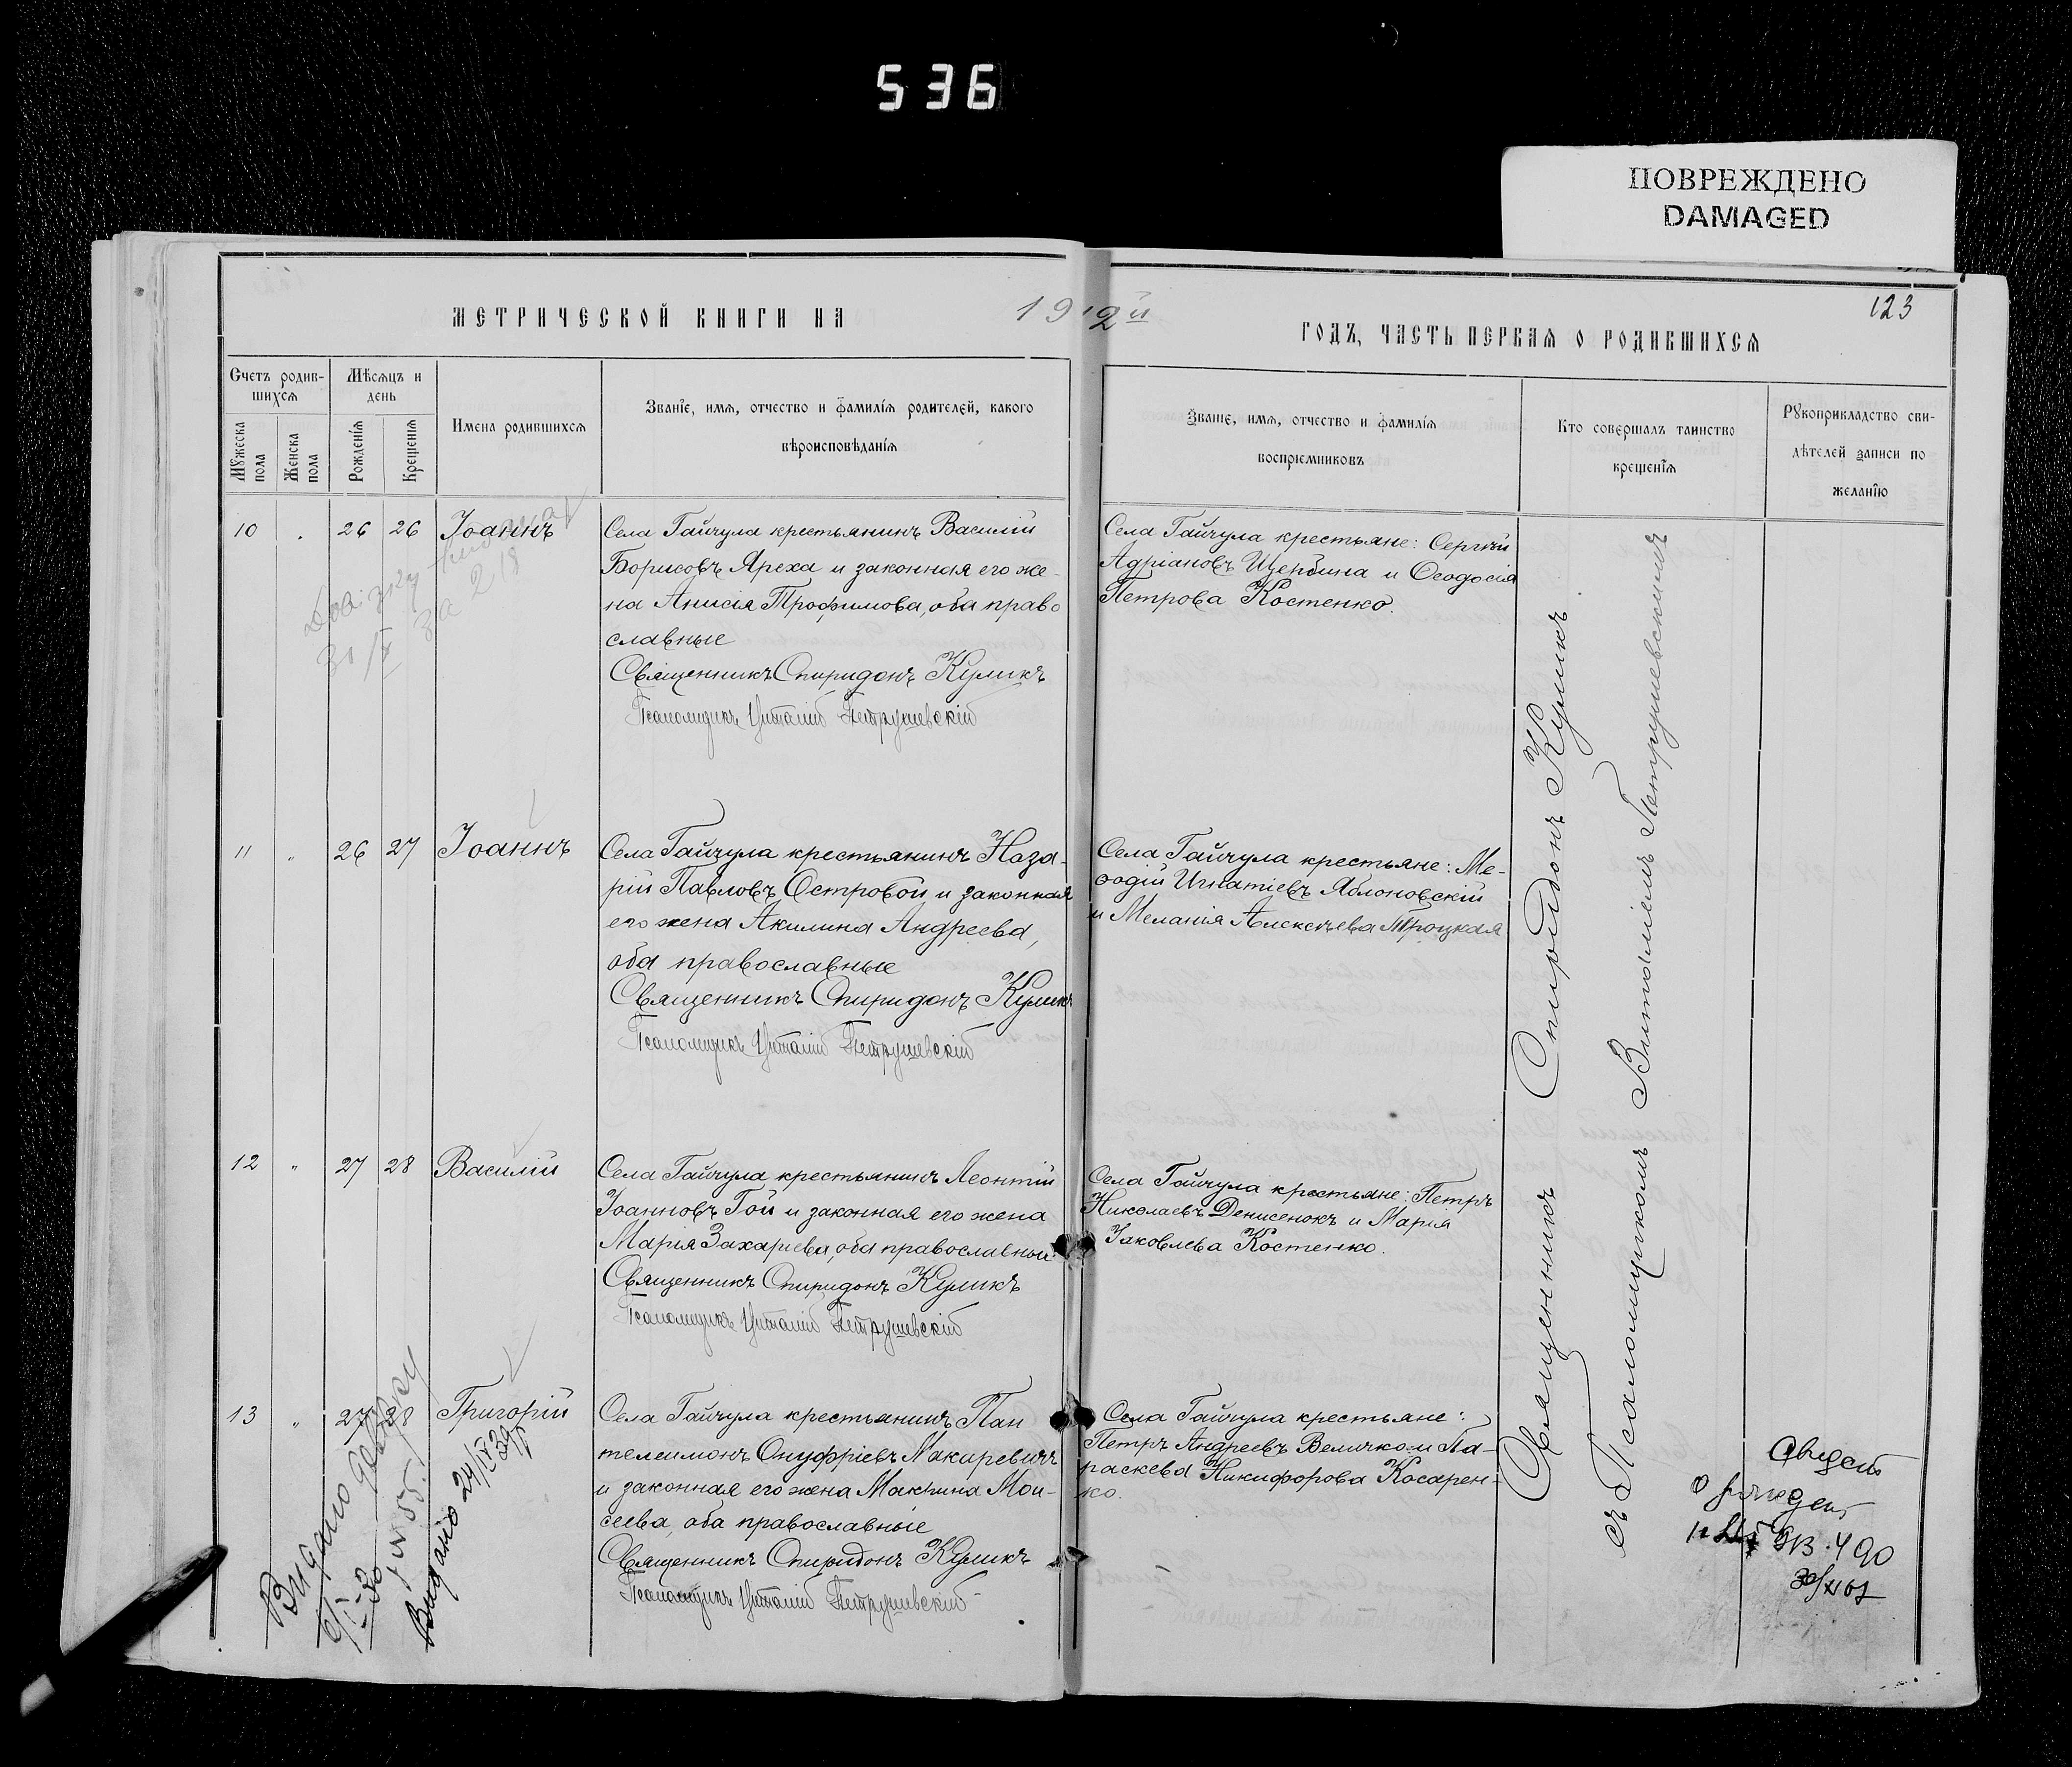 536
ПОВРЕЖДЕНО
DAMAGED
МЕТРИЧЕСКОЙ КНИГИ НА 1912й ГОДЪ, ЧАСТЬ ПЕРВАЯ О РОДИВШИХСЯ
123
Счетъ родив-
шихся
Мужеска пола
Женска пола
Мѣсяцъ и
день
Рожденія
Крещенія
Имена родившихся
Званіе, имя, отчество и фамилія родителей, какого
вѣроисповѣданія
Званіе, имя, отчество и фамилія
воспріемниковъ
Кто совершалъ таинство
крещенія
Рукоприкладство сви-
дѣтелей записи по
желанію
10 26 26 Іоаннъ
Села Гайчула крестьянинъ Василій
Борисовъ Яреха и законная его же-
на Анисія Трофимова, оба право
славные
Священникъ Спиридонъ Куликъ
Псаломщикъ Виталій Петрушевскій
Села Гайчула крестьяне: Сергѣй
Адріановъ Щербина и Ѳеодосія
Петрова Костенко.
11 " 26 27 Іоаннъ
Села Гайчула крестьянинъ Наза-
рій Павловъ Островой и законная
его жена Акилина Андреева,
оба православные
Священникъ Спиридонъ Куликъ
Псаломщикъ Виталій Петрушевскій
Села Гайчула крестьяне: Ме-
ѳодій Игнатіевъ Яблоновскій
и Меланія Алексѣева Троцкая
12 " 27 28 Василій
Села Гайчула крестьянинъ Леонтій
Іоанновъ Гой и законная его жена
Марія Захаріева, оба православные
Священникъ Спиридонъ Куликъ
Псаломщикъ Виталій Петрушевскій
Села Гайчула крестьяне: Петръ
Николаевъ Денисенокъ и Марія
Іаковлева Костенко.
13 " 27 28 Григорій
Села Гайчула крестьянинъ Пан
телеимонъ Онуфріевъ Макаревичъ
и законная его жена Макрина Мои-
сеева, оба православные
Священникъ Спиридонъ Куликъ
Псаломщикъ Виталій Петрушевскій
Села Гайчула крестьяне:
Петръ Андреевъ Величко и Па-
раскева Никифорова Косарен-
ко.
Священникъ Спиридонъ Куликъ
съ Псаломщикомъ Виталіемъ Петрушевскимъ
Довідку
за 218
Видано довідку
N 55.
Видано 24/IV 39